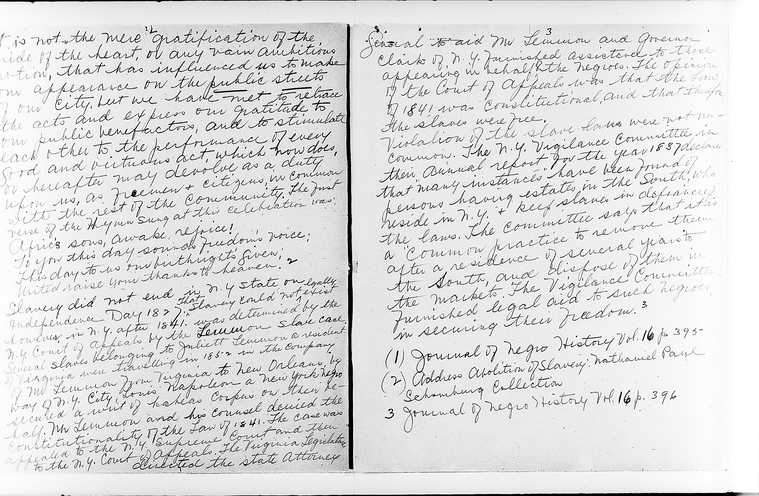 2
t is not the mere gratification of the
ride of the heart, or any vain ambitious
otion, that has influenced us to make
our appearance on the public streets
of our city, but we have met to retrace
the acts and express our gratitude to
our public benefactors, and to stimulate
each other to the performance of every
good and virtuous act, which now does,
or hereafter may devolve as a duty
upon us, as freemen & citizens, in common
with the rest of the Community. The first
verse of the Hymn Sung at this celebration was:
Africs sons, awake, rejoice!
To you this day sounds freedom's voice;
This day to us our birthright's given,
United raise your thanks to heaven! 2
Slavery did not end in N.Y State on
Independence Day 1827. That Slavery could not legally exist
however, in N.Y. after 1841, was determined by the
N.Y Court of Appeals by the Lemmon Slave case.
Several slaves belonging to Juliett Lemmon a resident
of Virginia were travelling in 1852 in the company
of Mr Lemmon from Virginia to New Orleans, by
way of N.Y. City. Louis Napoleon a New York Negro
secured a writ of habeas corpus on their be-
half. Mr Lemmon and his counsel denied the
Constitutionality of the Law of 1841. The case was
appealed to the N.Y. Supreme Court and then
to the N.Y. Court of Appeals. The Virginia Legislature
directed the state Attorney
3
General to aid Mr Lemmon and Governor
Clark of N.Y. furnished assistance to those
appearing in behalf the Negroes. The opinion
of the Court of Appeals was that the Law
of 1841 was Constitutional, and that therefore
the slaves were free.
Violation of the slave laws were not un-
common. The N.Y. Vigilance Committee in
their Annual report for the year 1837 declares
that "many instances" have been found of
persons having estates in the South, who
reside in N.Y. & keep slaves in defiance of
the laws. The Committee says that it is
a "Common practice to remove them
after a residence of several years to
the South, and dispose of them in
the markets. The Vigilance Committee
furnished legal aid to such Negroes
in securing their freedom. 3
(1) Journal of Negro History Vol. 16 p 395
(2) Address Abolition of Slavery: Nathaniel Paul
Schomburg Collection
3 Journal of Negro History Vol. 16 p. 396